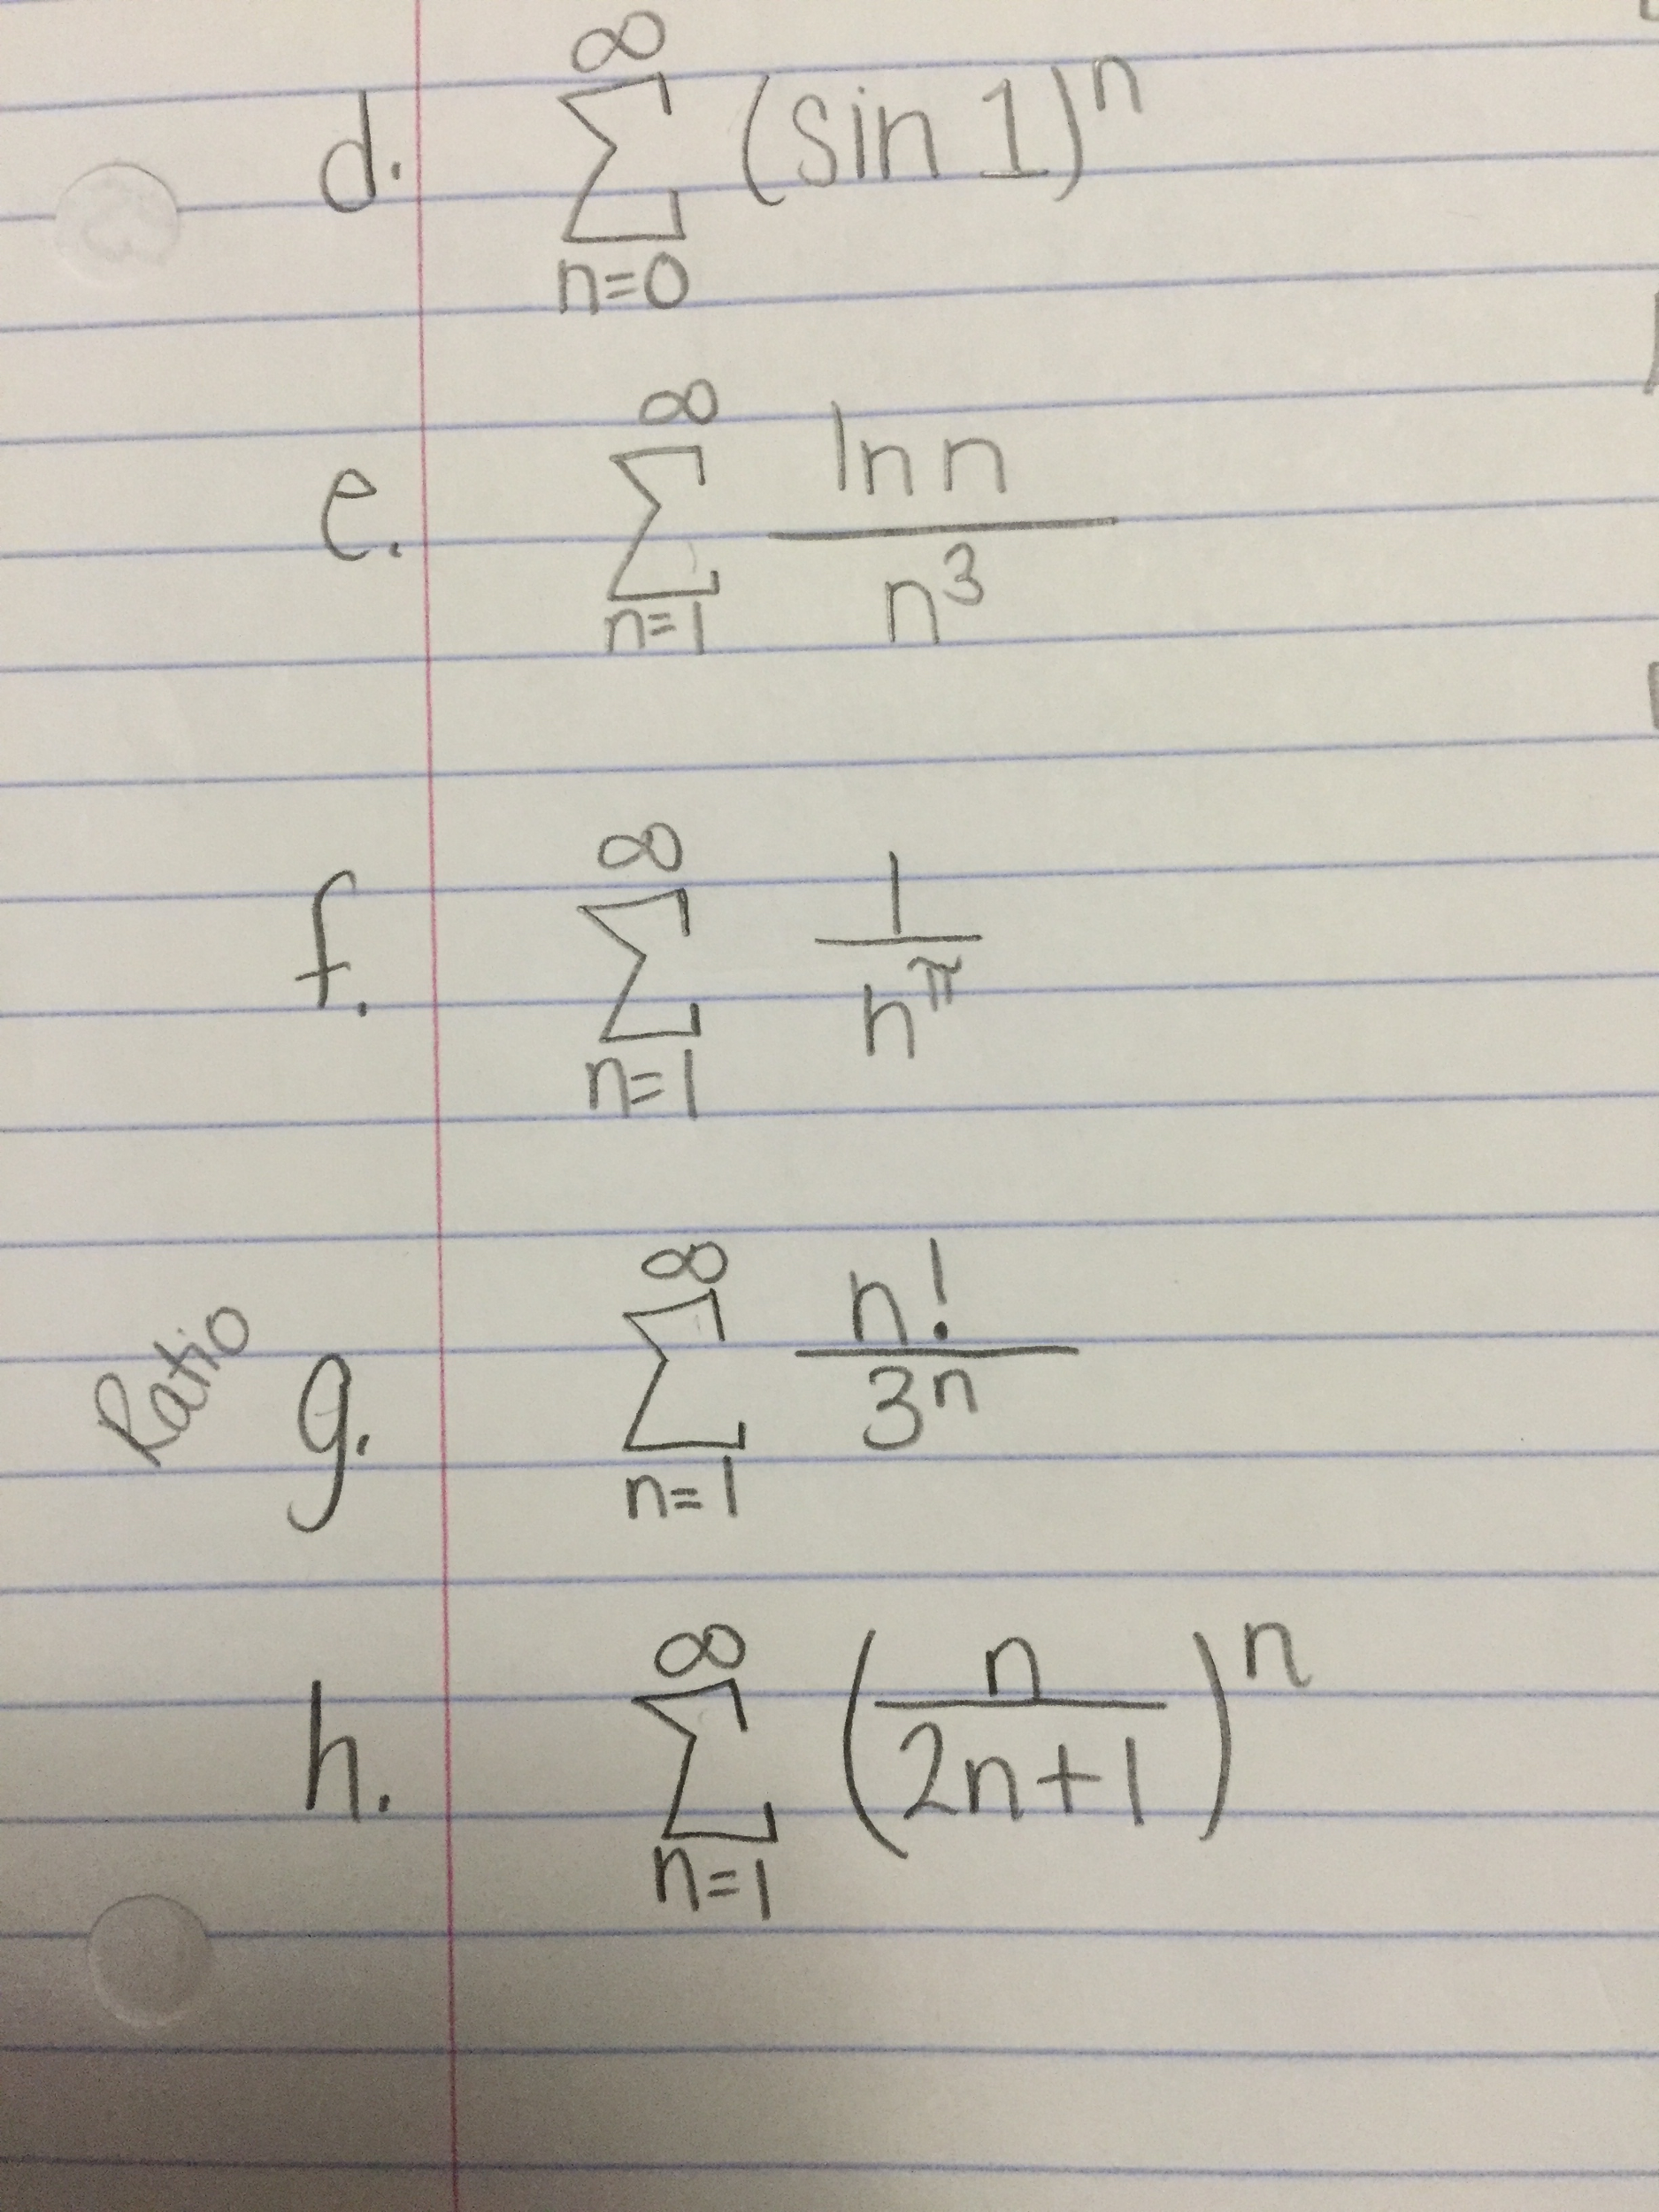 d. ∞∑n=0 (sin 1)^n
e. ∞∑n=1 ln n / n^3
f. ∞∑n=1 1 / n^π
Ratio g. ∞∑n=1 n! / 3^n
h. ∞∑n=1 (n / 2n+1)^n